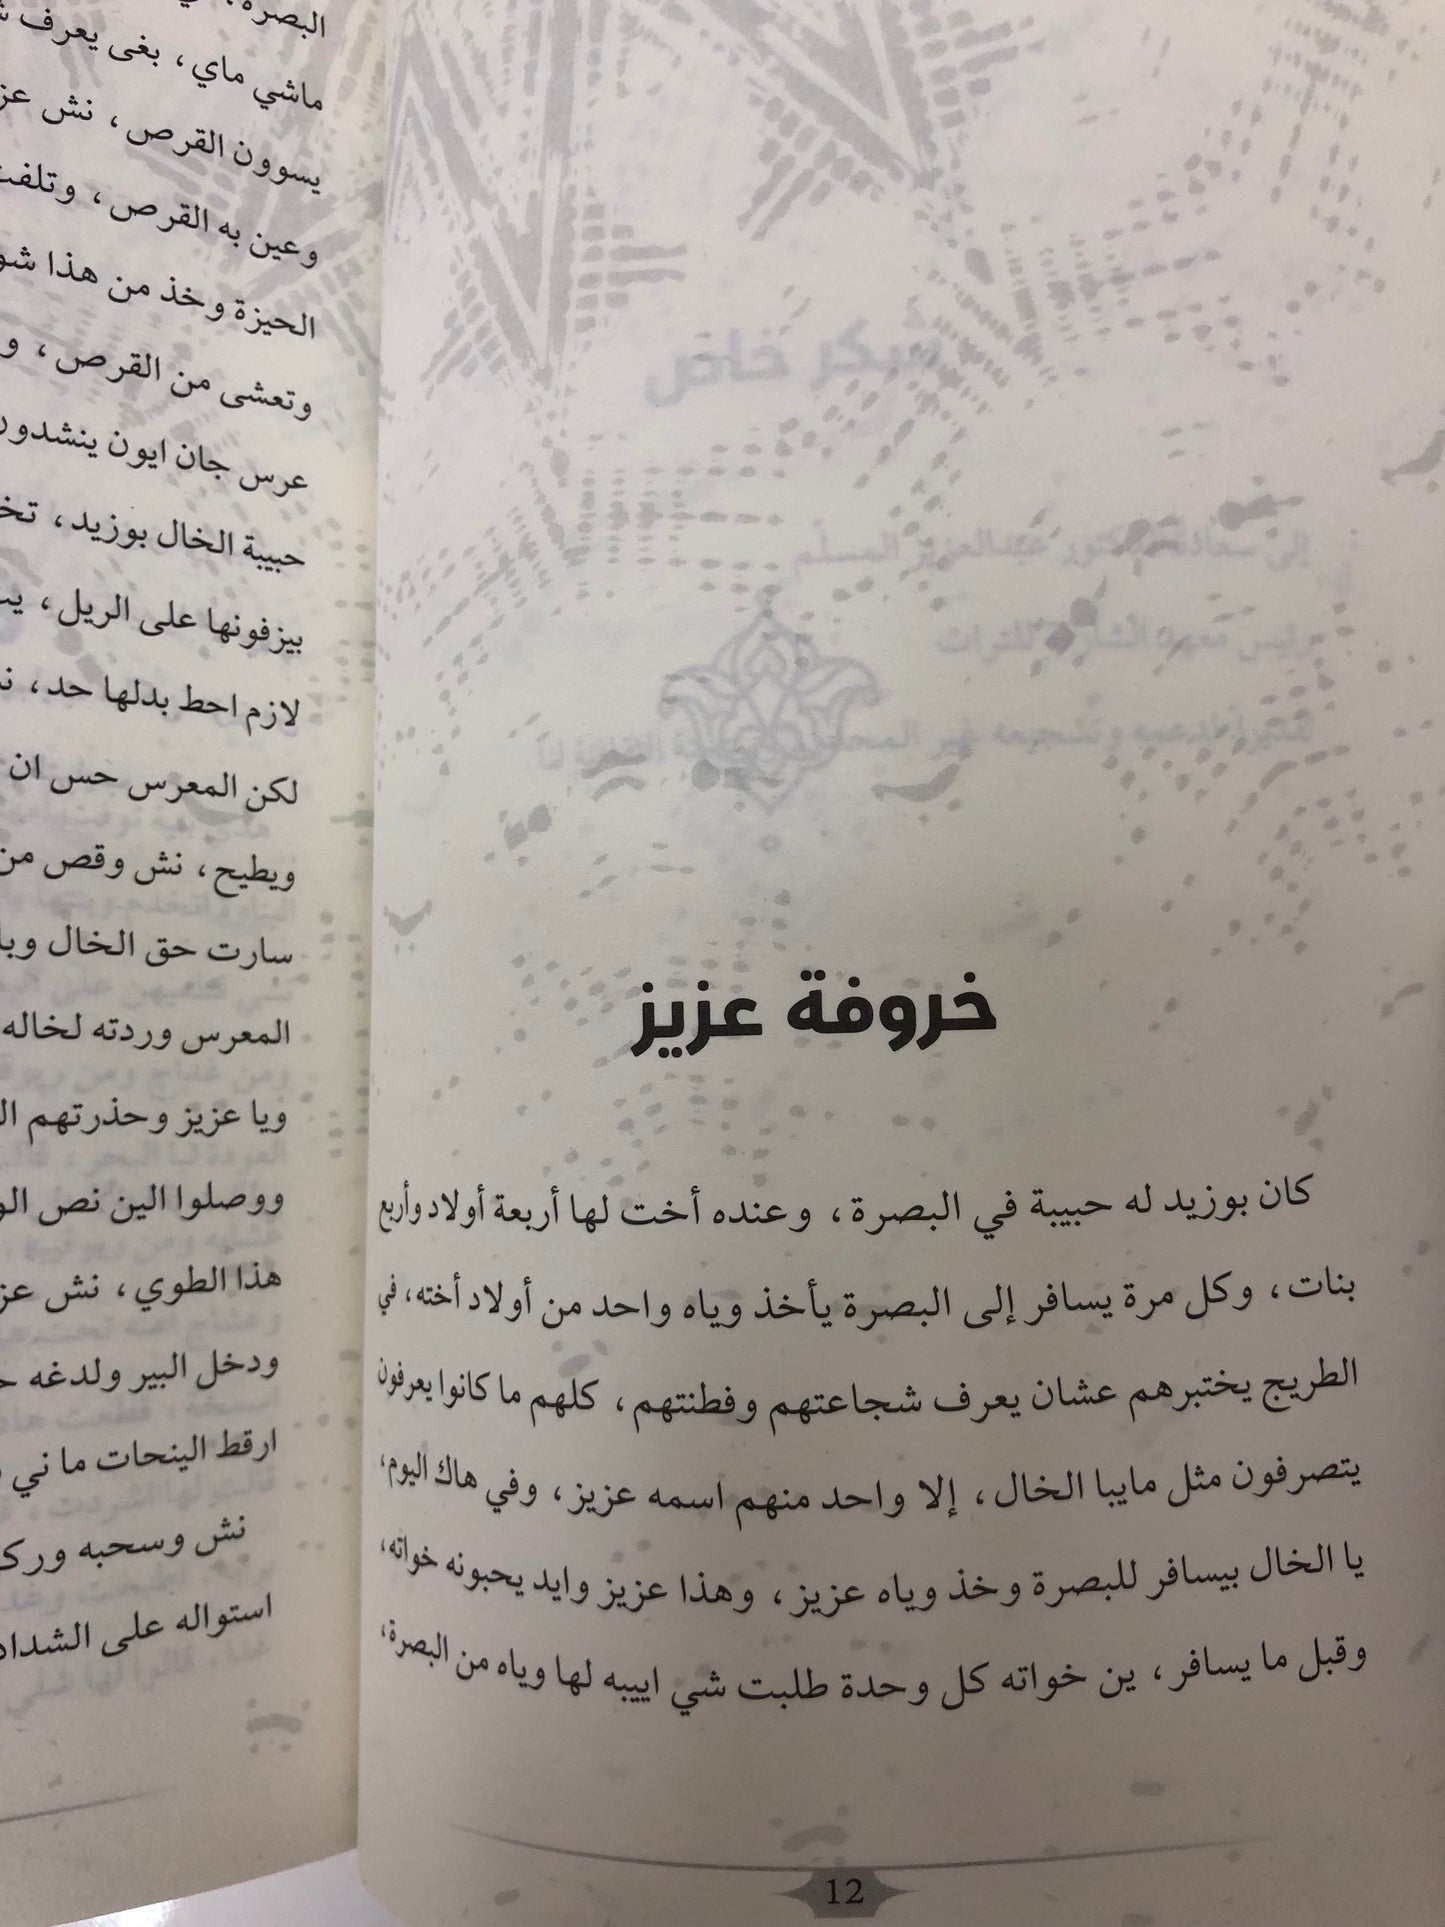 خروفة عزيز
كان بوزيد له حبيبة في البصرة، وعنده أخت لها أربعة أولاد وأربع
بنات، وكل مرة يسافر إلى البصرة يأخذ وياه واحد من أولاد أخته، في
الطريج يختبرهم عشان يعرف شجاعتهم وفطنتهم، كلهم ما كانوا يعرفون
يتصرفون مثل مايبا الخال، إلا واحد منهم اسمه عزيز، وفي هاك اليوم،
يا الخال بيسافر للبصرة وخذ وياه عزيز، وهذا عزيز وايد يحبونه خواته،
وقبل ما يسافر، ين خواته كل وحدة طلبت شي اييبه لها وياه من البصرة،
12
البصرة،
ماشي ماي، بغى يعرف
يسوون القرص، نش
وعين به القرص،
الحيزة وخذ من هذا
وتعشى من القرص، و
عرس جان ايون ينشدون
حبيبة الخال بوزيد،
بيزفونها على الريل،
لازم احط بدلها حد،
لكن المعرس حس ان
ويطيح، نش وقص من
سارت حق الخال
المعرس وردته لخاله
ويا عزيز وحذرتهم
ووصلوا الين نص
هذا الطوي، نش
ودخل البير ولدغه
ارقط الينحات ما ني
نش وسحبه
استواله على
شكر خاص
إلى سعادة الدكتور عبدالعزيز المسلم
رئيس معهد الشارقة للتراث